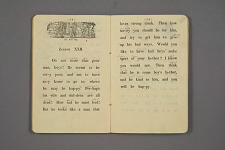 Lesson XXII.
Do not scorn this poor
man, boys! He seems to be
very poor, and not to have
any home to go to where
he may be happy! Perhaps
his wife and children are all
dead! May God be near
But he looks like a man that
loves strong drink. Then how
sorry you should be for him,
and try to get him to give
up his bad ways. Would you
like to have bad boys make
sport of your father? I know
you would not. Then think
that he is some boy's father,
and be kind to him, and you
will be happy.